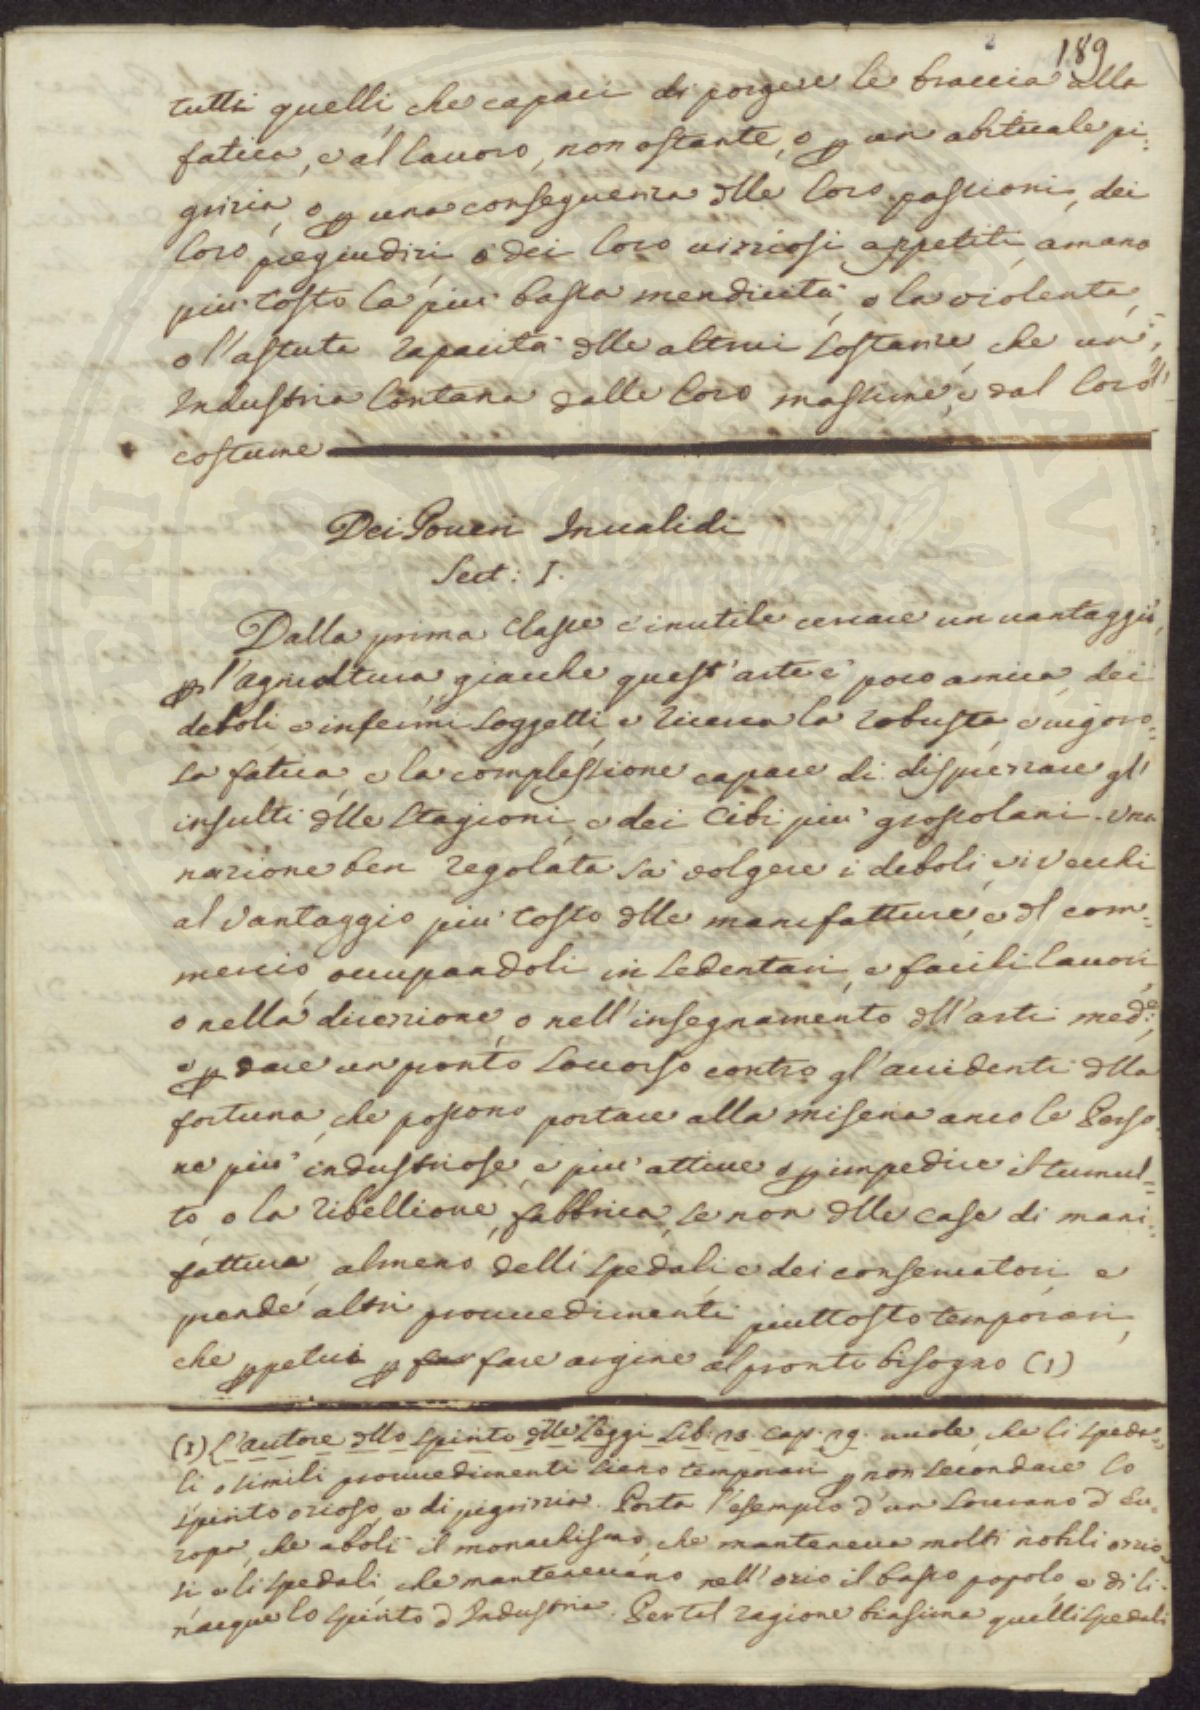 189
tutti quelli, che capaci di porgere le braccia alla
fatica, e al lavoro, non ostante, o p un abituale pi-
grizia, o p una conseguenza dlle loro passioni, dei
loro pregiudizi o dei loro vizziosi appetiti, amano
più tosto la più bassa mendicità, o la violenta,
o l'astuta rapacità dlle altrui sostanze, che un'
Industria lontana dalle loro massime, e dal loro
costume
Dei Poveri Invalidi
Sect: I.
Dalla prima Classe è inutile cercare un vantaggio,
p l'agricoltura, giacche quest'arte è poco amica dei
deboli e infermi soggetti, e ricerca la robusta, e vigoro=
sa fatica, e la complessione capace di disprezzare gl'
insulti dlle Stagioni, e dei Cibi più grossolani. Una
nazione ben regolata sà volgere i deboli, e i vecchi
al vantaggio più tosto dlle manifatture, e dl com=
mercio, occupandoli in sedentari, e facili lavori,
o nella direzione, o nell'insegnamento dll'arti med.e,
e p dare un pronto soccorso contro gl'accidenti dlla
fortuna, che possono portare alla miseria anco le Perso
ne più industriose, e più attive o p impedire il tumul=
to, o la ribellione, fabbrica, se non dlle case di mani=
fattura, almeno delli spedali, e dei conservatori, e
prende altri provvedimenti piuttosto temporari,
che ppetui p far fare argine al pronto bisogno (1)
(1) L'autore dllo spirito dlle Leggi Lib: 23. cap. 29. vuole, che li speda=
li, o simili provvedimenti siano temporari p non secondare lo
spirito ozioso, e di pigrizia. Porta l'esempio d'un Sovrano d'Eu=
ropa, che abolì il monachismo, che manteneva molti nobili ozzio
si e li spedali che mantenevano nell'ozio il basso popolo, e di lì
nacque lo spirito d'Industria. Per tal ragione biasima quelli spedali